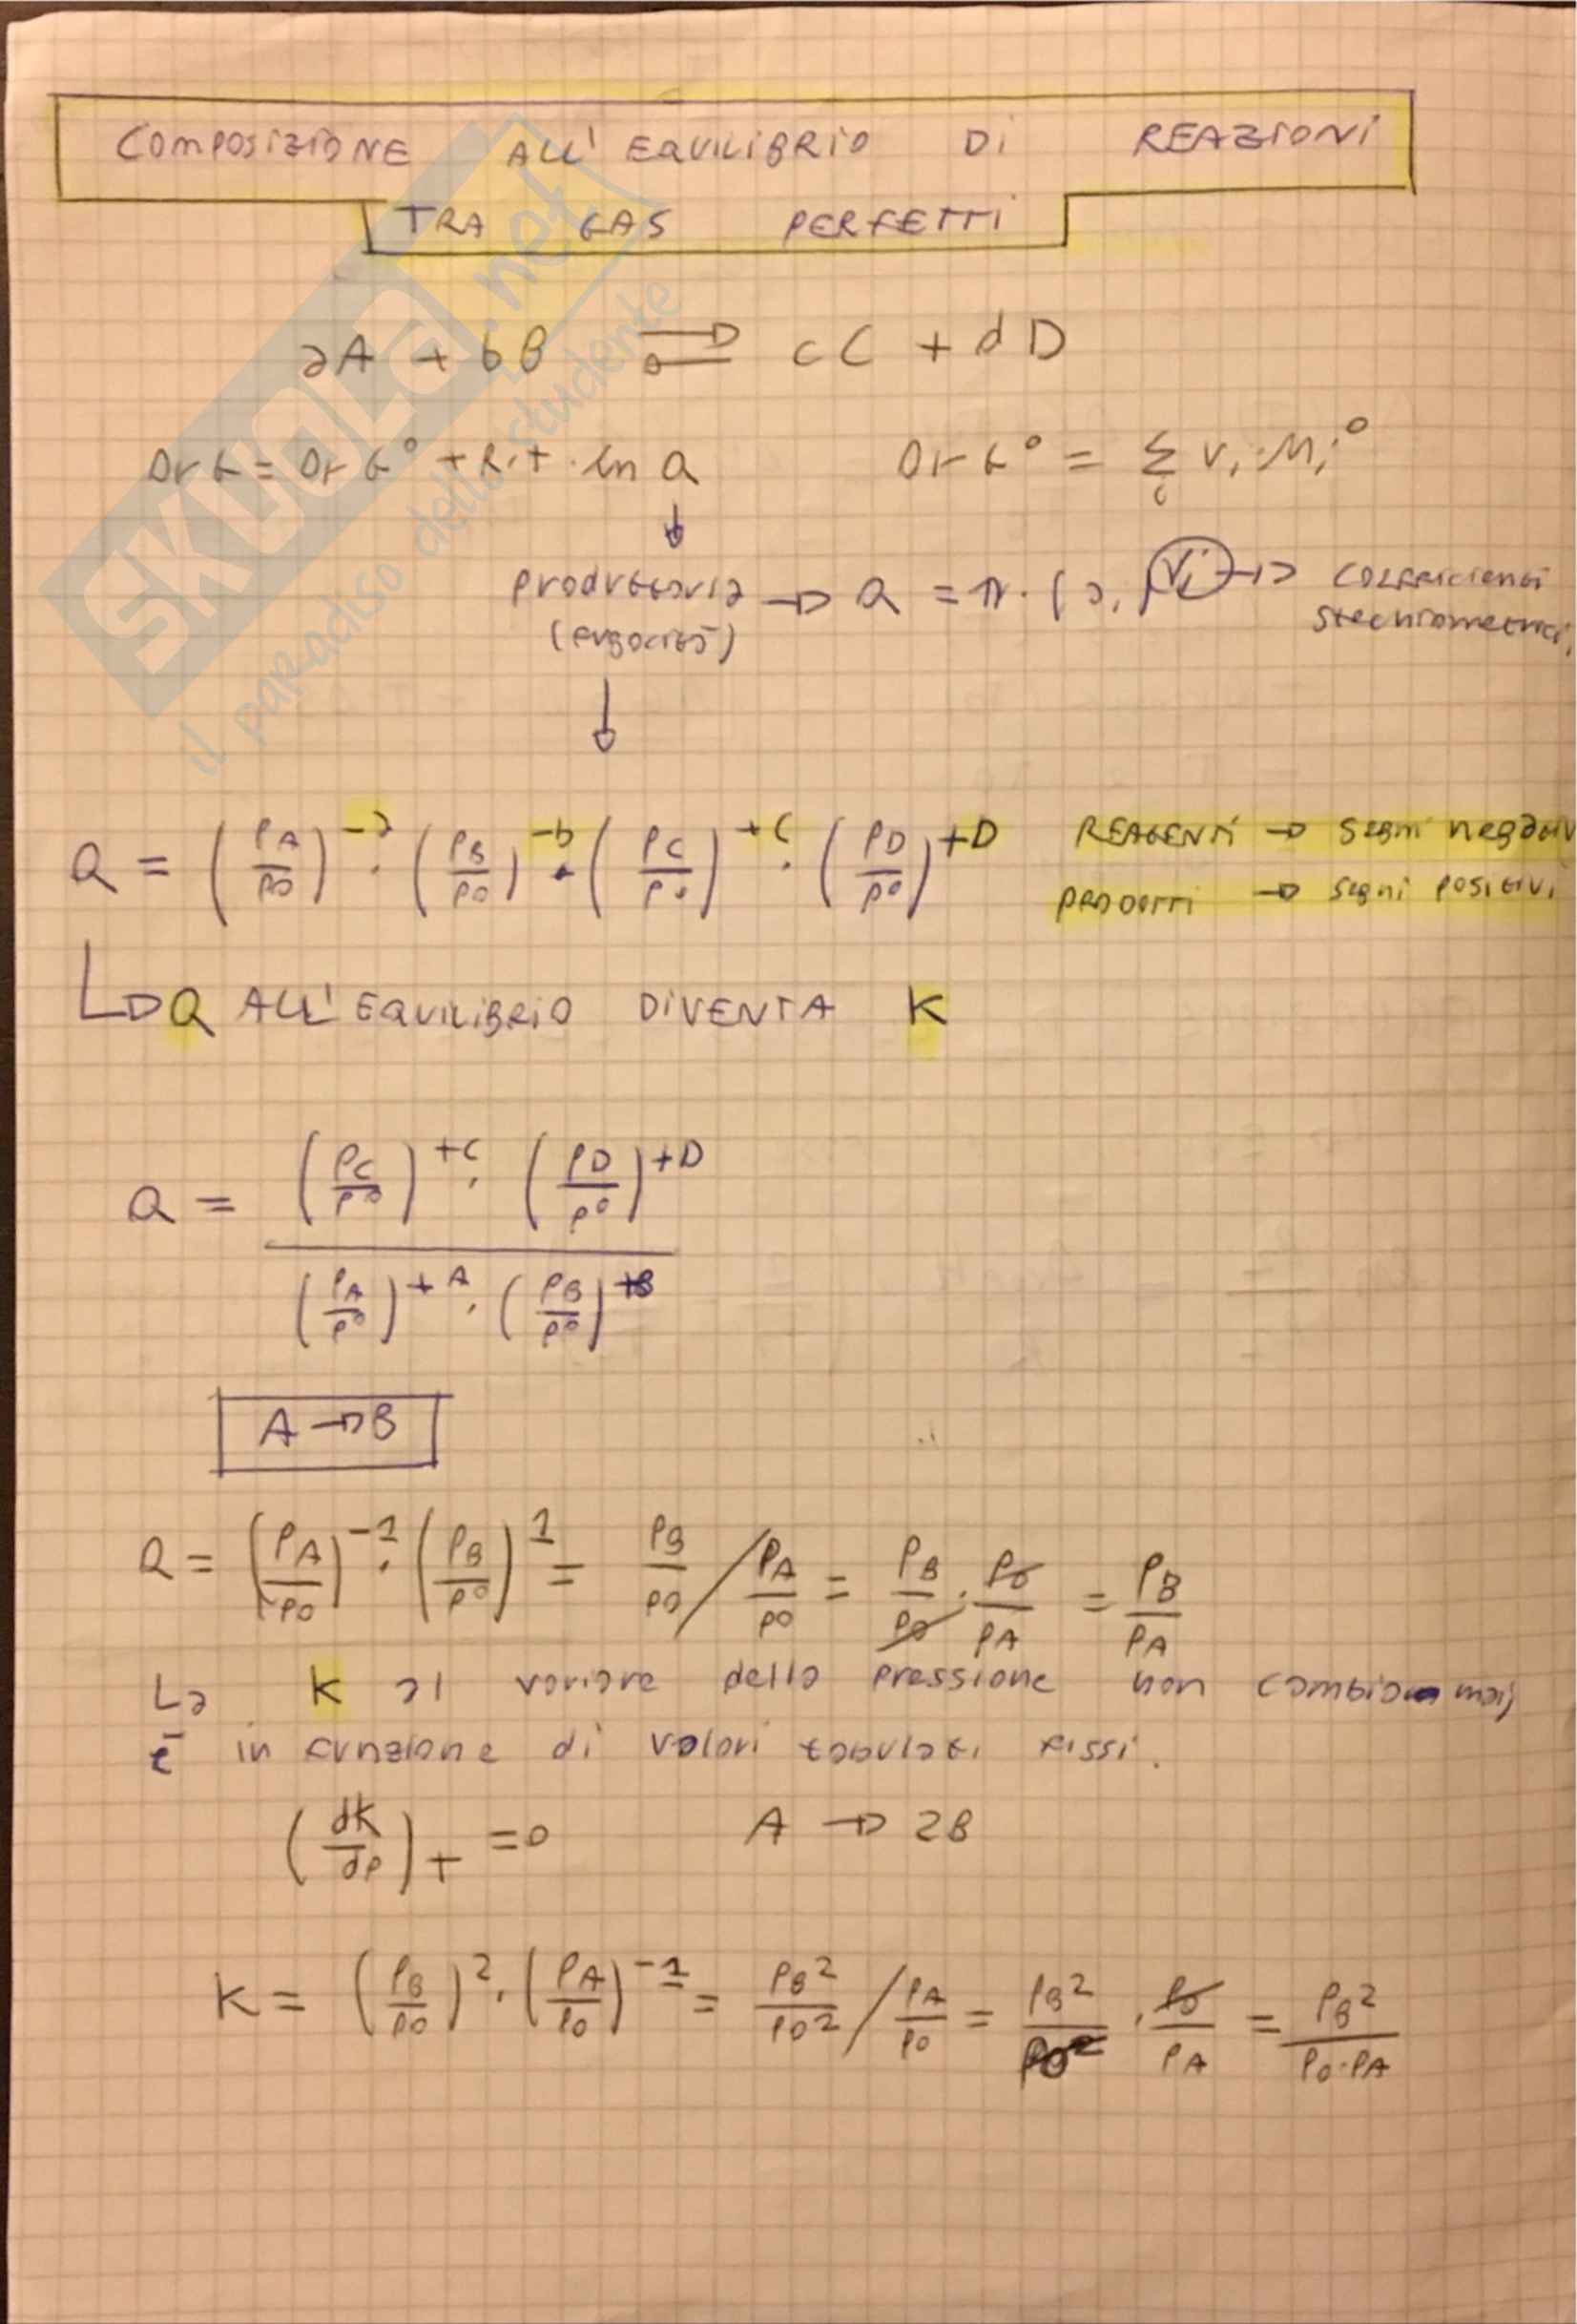 COMPOSIZIONE ALL'EQUILIBRIO DI REAZIONI
TRA GAS PERFETTI
aA + bB ⇄ cC + dD
ΔrG = ΔrG° + R·T·ln Q    ΔrG° = Σi νi·μi°
produttoria → Q = π·(ai)^νi → coefficienti
(fugacità) stechiometrici
Q = (PA/P0)^-a · (PB/P0)^-b · (PC/P°)^+c · (PD/P°)^+D    REAGENTI → segni negativ
PRODOTTI → segni positivi
Q ALL'EQUILIBRIO DIVENTA K
Q = (PC/P°)^+c · (PD/P°)^+D / (PA/P°)^+A · (PB/P°)^+B
A → B
Q = (PA/P0)^-1 · (PB/P°)^1 = PB/P0 / PA/P0 = PB/P0 · P0/PA = PB/PA
La K al variare della pressione non cambia mai,
è in funzione di valori tabulati fissi.
(dK/dP)T = 0    A → 2B
K = (PB/P0)^2 · (PA/P0)^-1 = PB^2/P0^2 / PA/P0 = PB^2/P0^2 · P0/PA = PB^2/P0·PA
SKUOLA.net
il paradiso dello studente